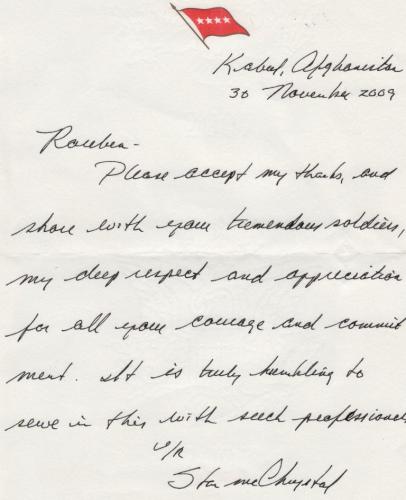 Kabul, Afghanistan
30 November 2009
Rouben-
Please accept my thanks, and
share with your tremendous soldiers,
my deep respect and appreciation
for all your courage and commit
ment. It is truly humbling to
serve in this with such professionals
V/R
Stan McChrystal